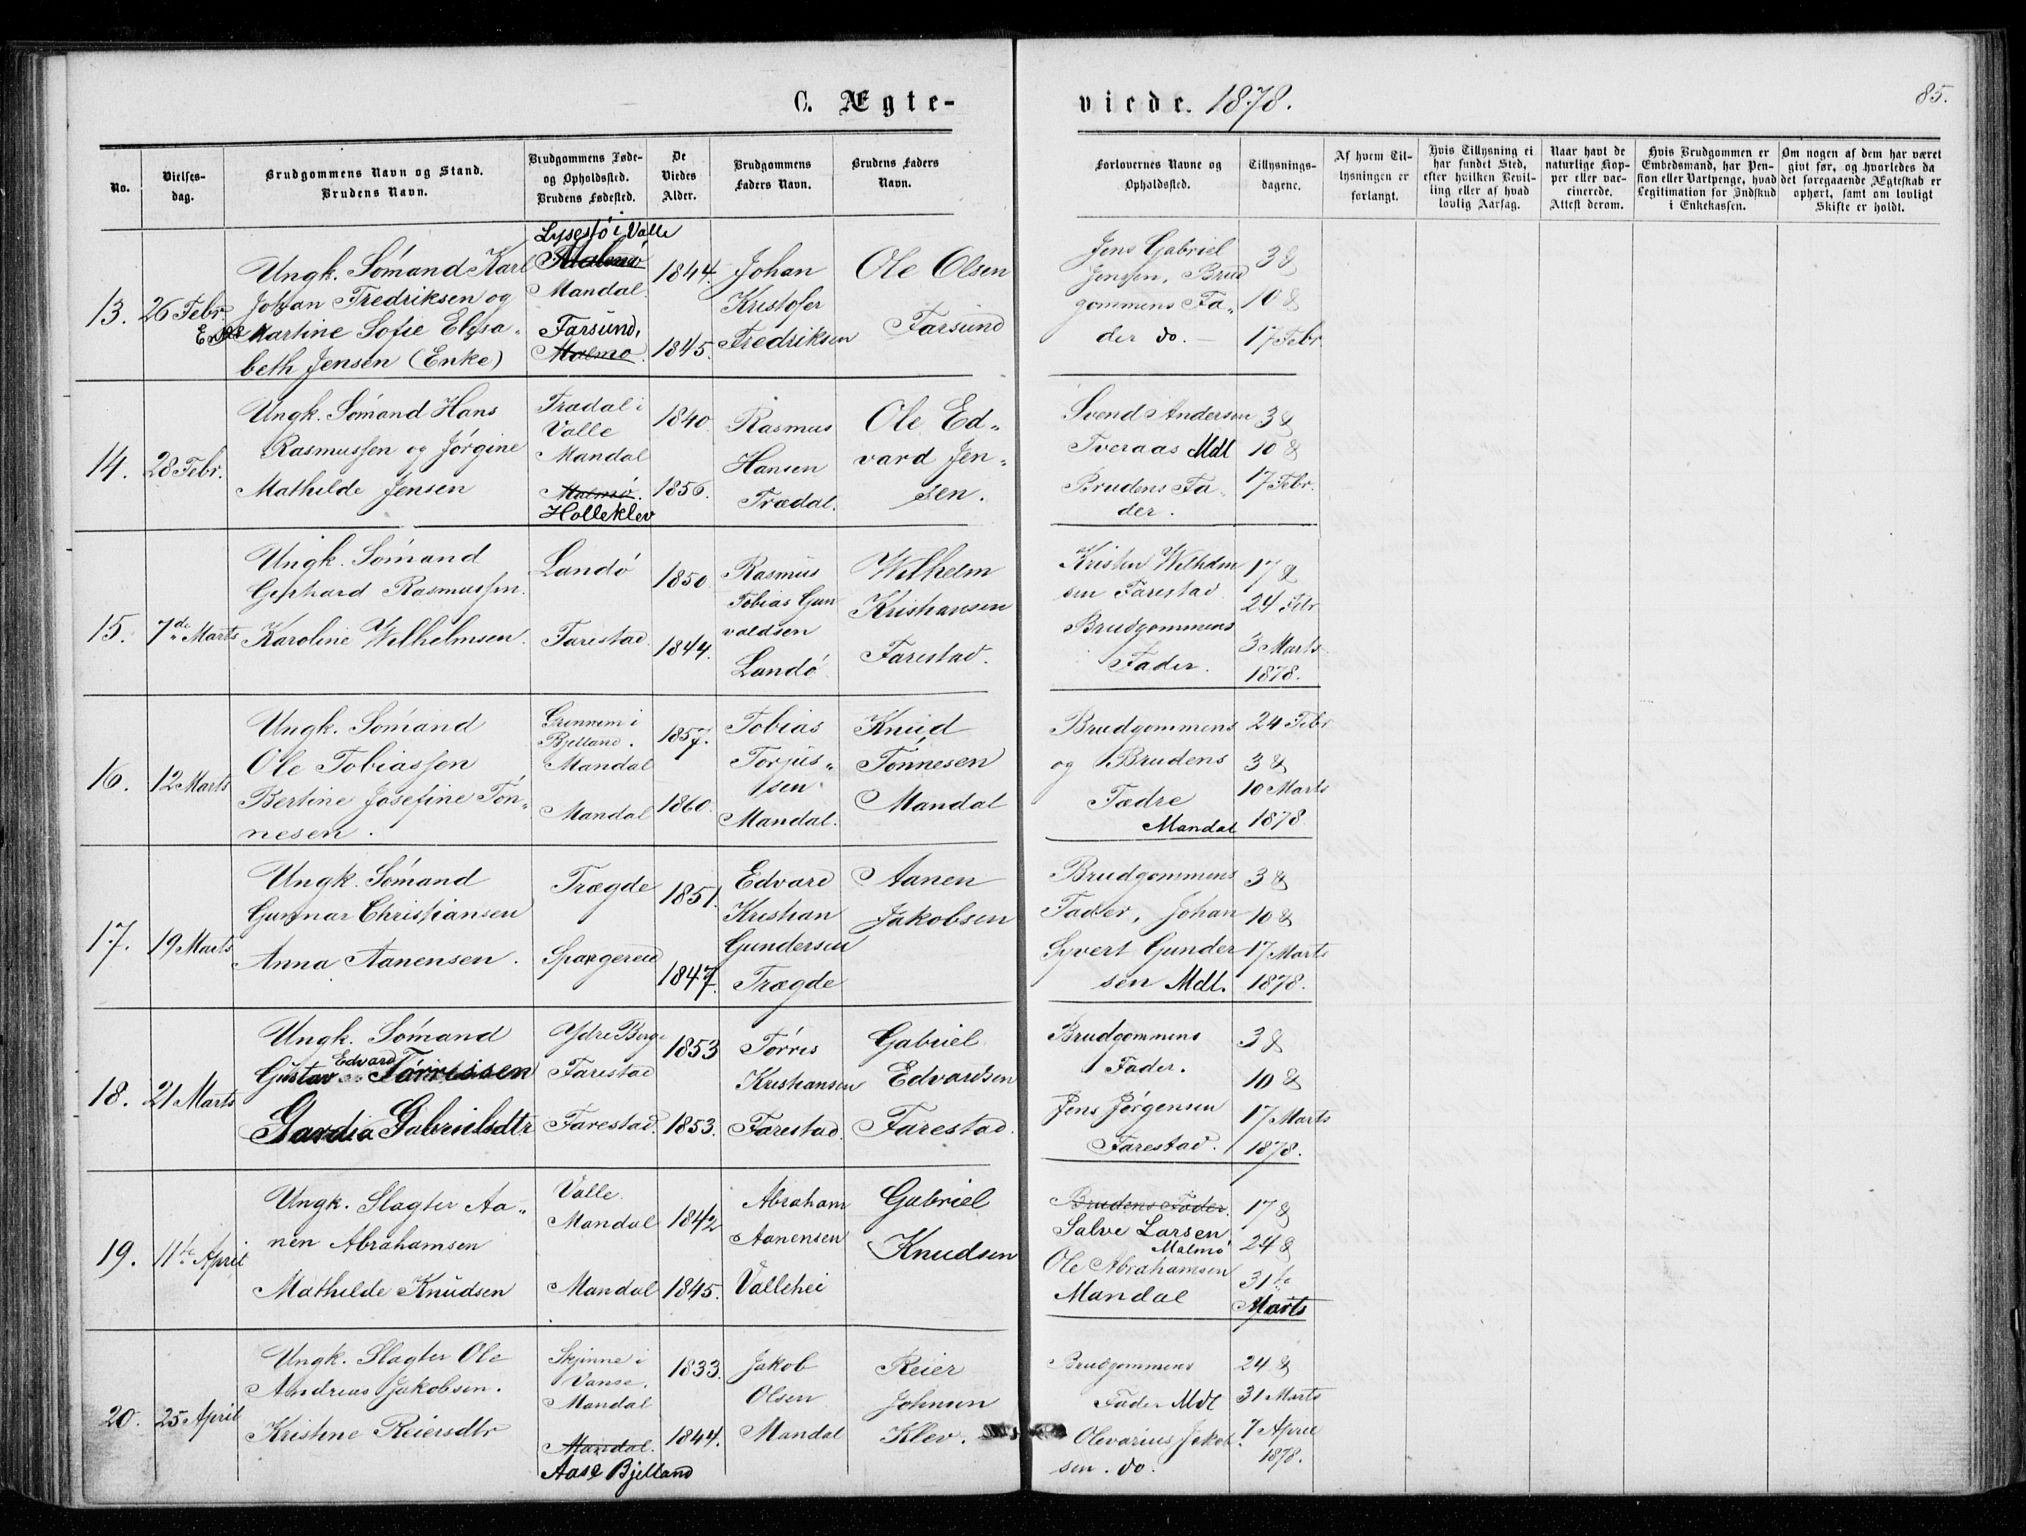 C. Ægte-
viede. 1878.
85.
No.
Vielses-
dag.
Brudgommens Navn og Stand.
Brudens Navn.
Brudgommens Føde-
og Opholdssted.
Brudens Fødested.
De
Viedes
Alder.
Brudgommens
Faders Navn.
Brudens Faders
Navn.
Forlovernes Navne og
Opholdssted.
Tillysnings-
dagene.
Af hvem Til-
lysningen er
forlangt.
Hvis Tillysning ei
har fundet Sted,
efter hvilken Bevil-
ling eller af hvad
lovlig Aarsag.
Naar havt de
naturlige Kop-
per eller vac-
cinerede.
Attest derom.
Hvis Brudgommen er
Embedsmand, har Pen-
sion eller Vartpenge, hvad
Legitimation for Indskud
i Enkekassen.
Om nogen af dem har været
givt før, og hvorledes da
det foregaaende Ægteskab er
ophørt, samt om lovligt
Skifte er holdt.
13.
26 Febr.
Ungk. Sømand Karl
Johan Fredriksen og
Enke Martine Sofie Elisa-
beth Jensen (Enke)
Lysestø i Valle
Malmø
Mandal.
Farsund,
Malmø.
1844.
1845.
Johan
Kristofer
Fredriksen
Ole Olsen
Farsund
Jens Gabriel
Jenssen, Brud
gommens Fa-
der do. —
3 &
10 &
17 Febr
14.
28 Febr.
Ungk. Sømand Hans
Rasmussen og Jørgine
Mathilde Jensen
Trædal i
Valle
Mandal
Malmø.
Holleklev
1840.
1856.
Rasmus
Hansen
Trædal.
Ole Ed-
vard Jen-
sen.
Svend Andersen
Tveraas Mdl
Brudens Fa-
der.
3 &
10 &
17 Febr.
15.
7de Marts
Ungk. Sømand
Gerhard Rasmussen.
Karoline Wilhelmsen.
Landø
Farestad.
1850.
1844.
Rasmus
Tobias Gun
valdsen
Landø.
Wilhelm
Kristiansen
Farestad.
Kristen Wilhelm
sen Farestad
Brudgommens
Fader.
17 &
24 Febr
3 Marts
1878.
16.
12 Marts
Ungk. Sømand
Ole Tobiassen
Bertine Josefine Tøn-
nesen.
Grennem i
Bjelland.
Mandal
Mandal
1857.
1860.
Tobias
Torjus-
sen
Mandal.
Knud
Tønnesen
Mandal
Brudgommens
og Brudens
Fædre
Mandal
24 Febr
3 &
10 Marts
1878.
17.
19 Marts
Ungk. Sømand
Gunnar Christiansen
Anna Aanensen.
Trægde
Spangereid
1851.
1847.
Edvard
Kristian
Gundersen
Trægde
Aanen
Jakobsen
Brudgommens
Fader, Johan
Syvert Gunder
sen Mdl.
3 &
10 &
17 Marts
1878.
18.
21 Marts
Ungk. Sømand
Edvard
Gustav Tørressen
Gardia Gabrielsdtr
Ydre Berge
Farestad
Farestad.
1853
1853.
Tørris
Kristiansen
Farestad.
Gabriel
Edvardsen
Farestad.
Brudgommens
Fader.
Jens Jørgensen
Farestad.
3 &
10 &
17 Marts
1878.
19.
11te April
Ungk. Slagter Aa-
nen Abrahamsen
Mathilde Knudsen
Valle.
Mandal
Mandal
1842
1845.
Abraham
Aanensen
Vallehei
Gabriel
Knudsen
Brudens Fader.
Salve Larsen
Malmø
Ole Abrahamsen
Mandal
17 &
24 &
31te
Marts
20.
25 April
Ungk. Slagter Ole
Andreas Jakobsen.
Kristine Reiersdtr
Skjinne i
Vanse.
Mandal
Mandal.
Aase Bjelland
1833.
1844.
Jakob
Olsen
Mandal
Reier
Johnsen
Klev.
Brudgommens
Fader Mdl
Olevarius Jakob
sen. do.
24 &
31 Marts
7 April
1878.